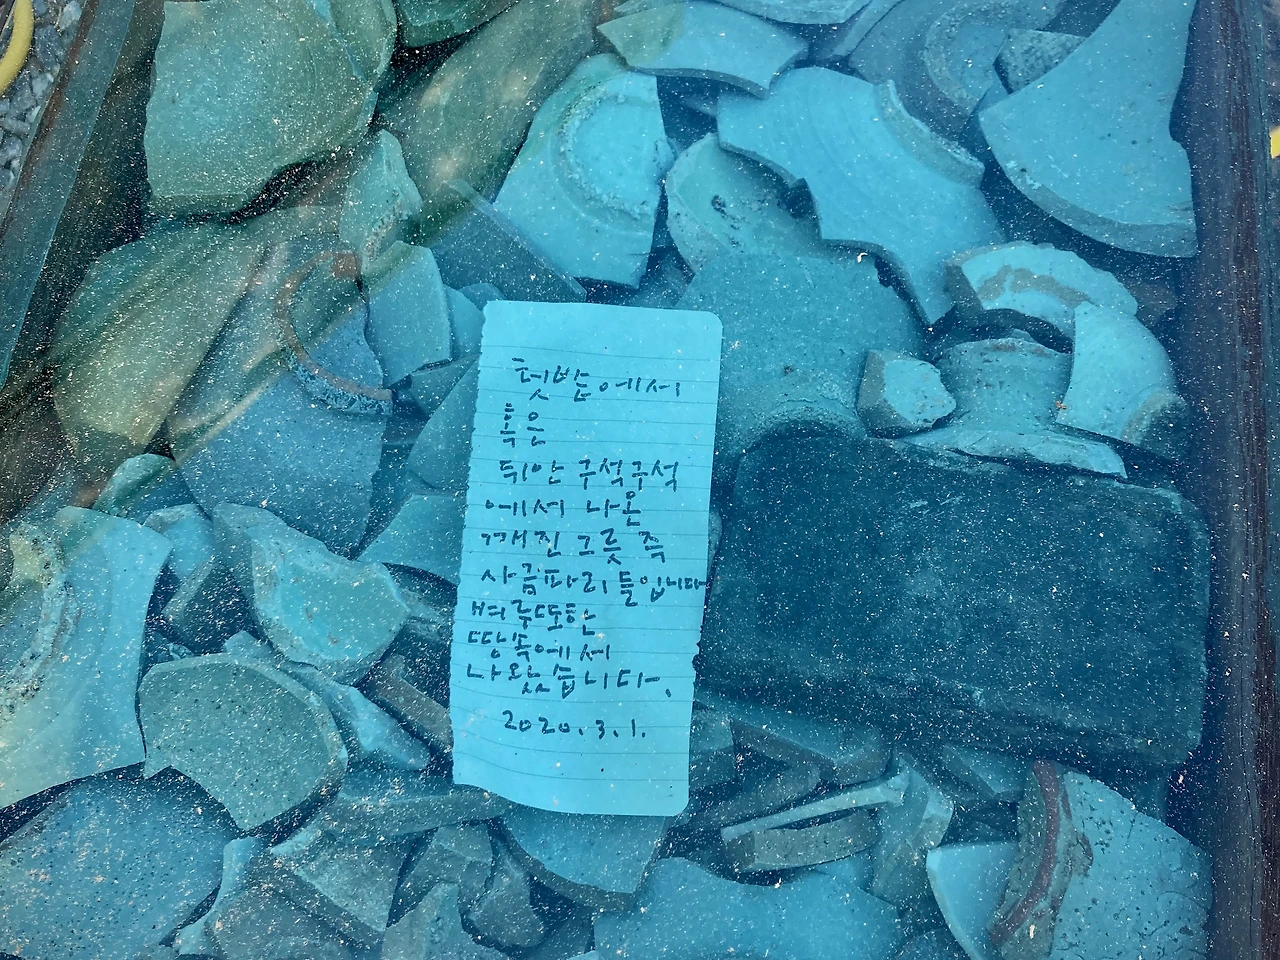 텃밭에서
혹은
뒤안 구석구석
에서 나온
깨진 그릇 즉
사금파리들입니다
벼루또한
땅속에서
나왔습니다.
2020.3.1.